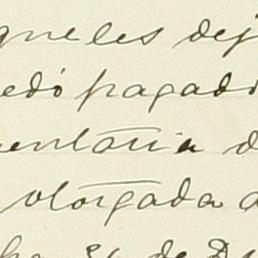 queles dej
edó pagad
entaria d
otorgada a
de D